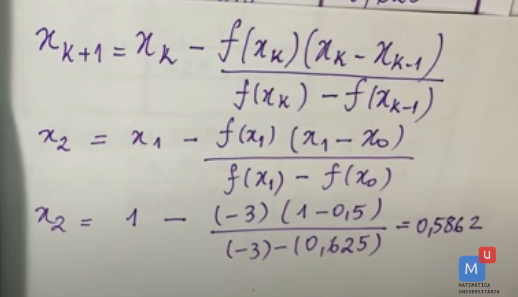 x_{k+1} = x_k - \frac{f(x_k)(x_k - x_{k-1})}{f(x_k) - f(x_{k-1})}
x_2 = x_1 - \frac{f(x_1)(x_1 - x_0)}{f(x_1) - f(x_0)}
x_2 = 1 - \frac{(-3)(1-0,5)}{(-3)-(0,625)} = 0,5862
M U
MATEMÁTICA
UNIVERSITÁRIA